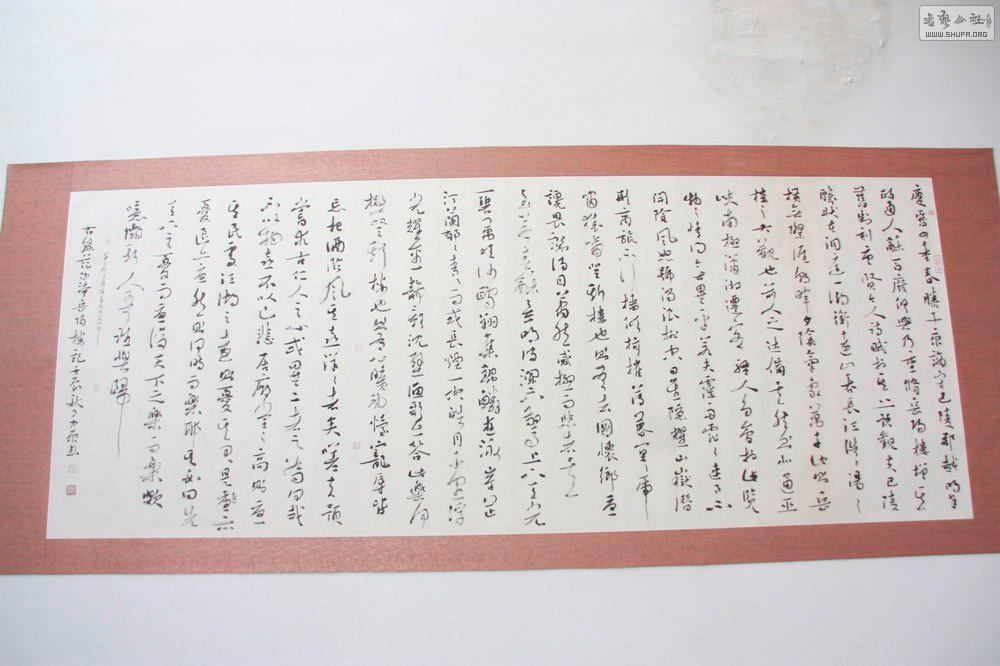 慶曆四年春滕子京謫守巴陵郡越明年
政通人和百廢俱興乃重修岳陽樓增其
舊制刻唐賢今人詩賦於其上予觀夫巴陵
勝狀在洞庭一湖銜遠山吞長江浩浩湯湯
橫無際涯朝暉夕陰氣象萬千此則岳
樓之大觀也前人之述備矣然則北通巫
峽南極瀟湘遷客騷人多會於此覽
物之情得無異乎若夫霪雨霏霏連月不
開陰風怒號濁浪排空日星隱耀山嶽潛
形商旅不行檣傾楫摧薄暮冥冥虎
嘯猿啼登斯樓也則有去國懷鄉憂
讒畏譏滿目蕭然感極而悲者矣
至若春和景明波瀾不驚上下天光
一碧萬頃沙鷗翔集錦鱗游泳岸芷
汀蘭郁郁青青而或長煙一空皓月千里浮
光耀金靜影沉璧漁歌互答此樂何
極登斯樓也則有心曠神怡寵辱皆
忘把酒臨風其喜洋洋者矣嗟夫予
嘗求古仁人之心或異二者之為何哉
不以物喜不以己悲居廟堂之高則憂
其民處江湖之遠則憂其君是進亦
憂退亦憂然則何時而樂耶其必曰先
天下之憂而憂後天下之樂而樂歟
噫微斯人吾誰與歸
右錄范仲淹岳陽樓記
書法公社
WWW.SHUFA.ORG